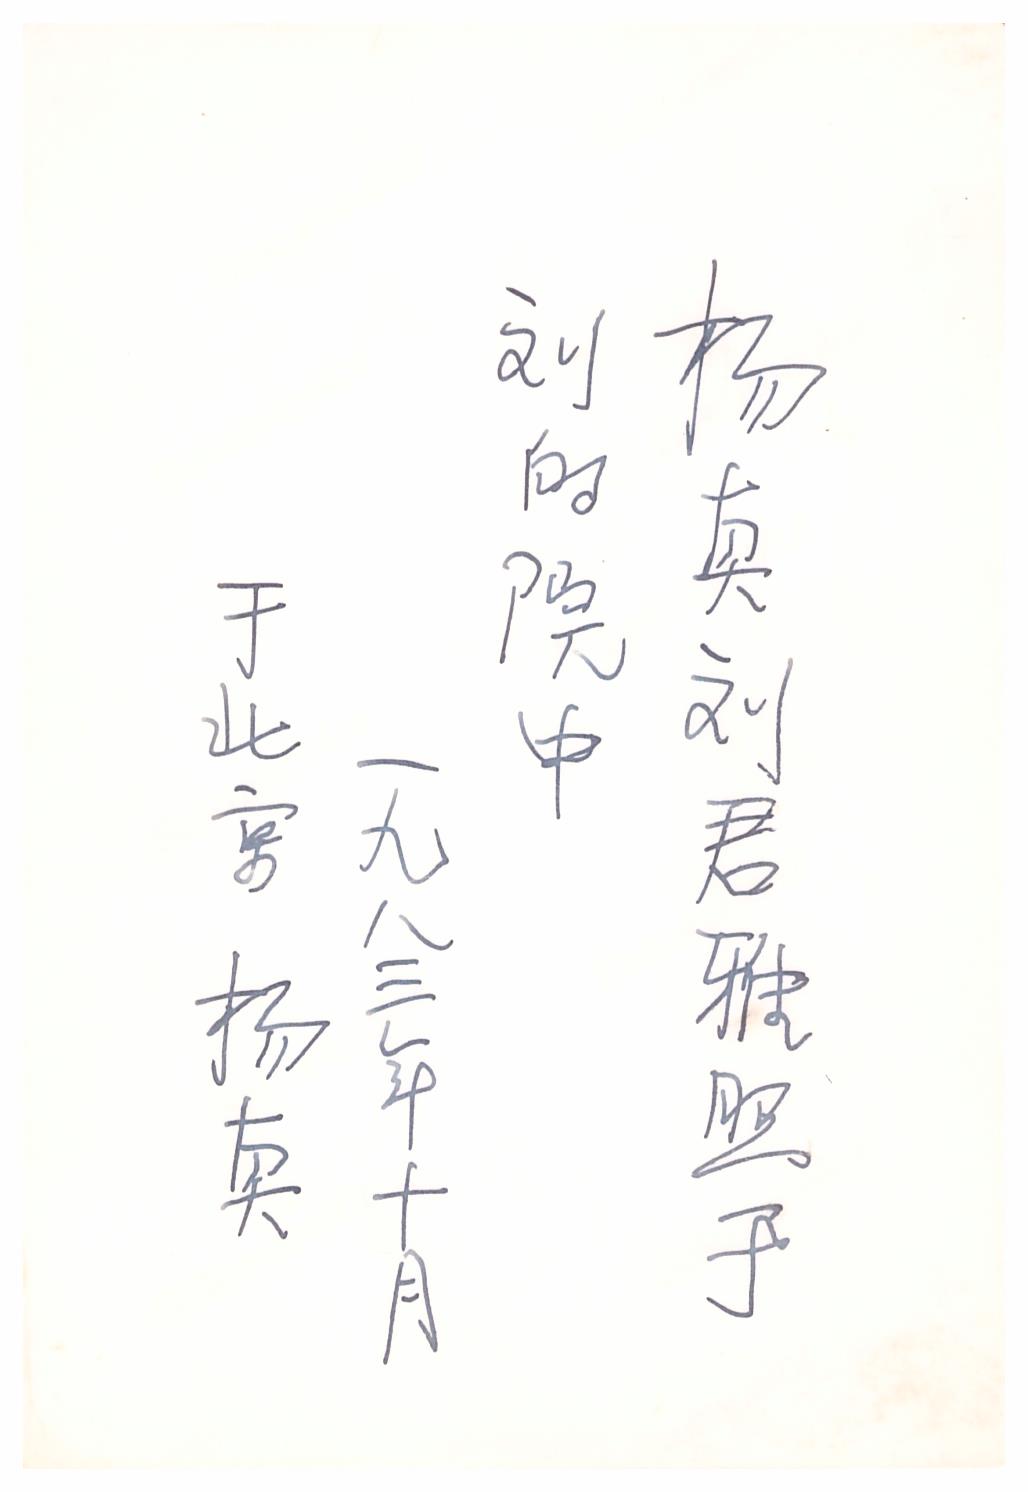 杨真刘君雅照于
刘的院中
一九八三年十月
于北京 杨真